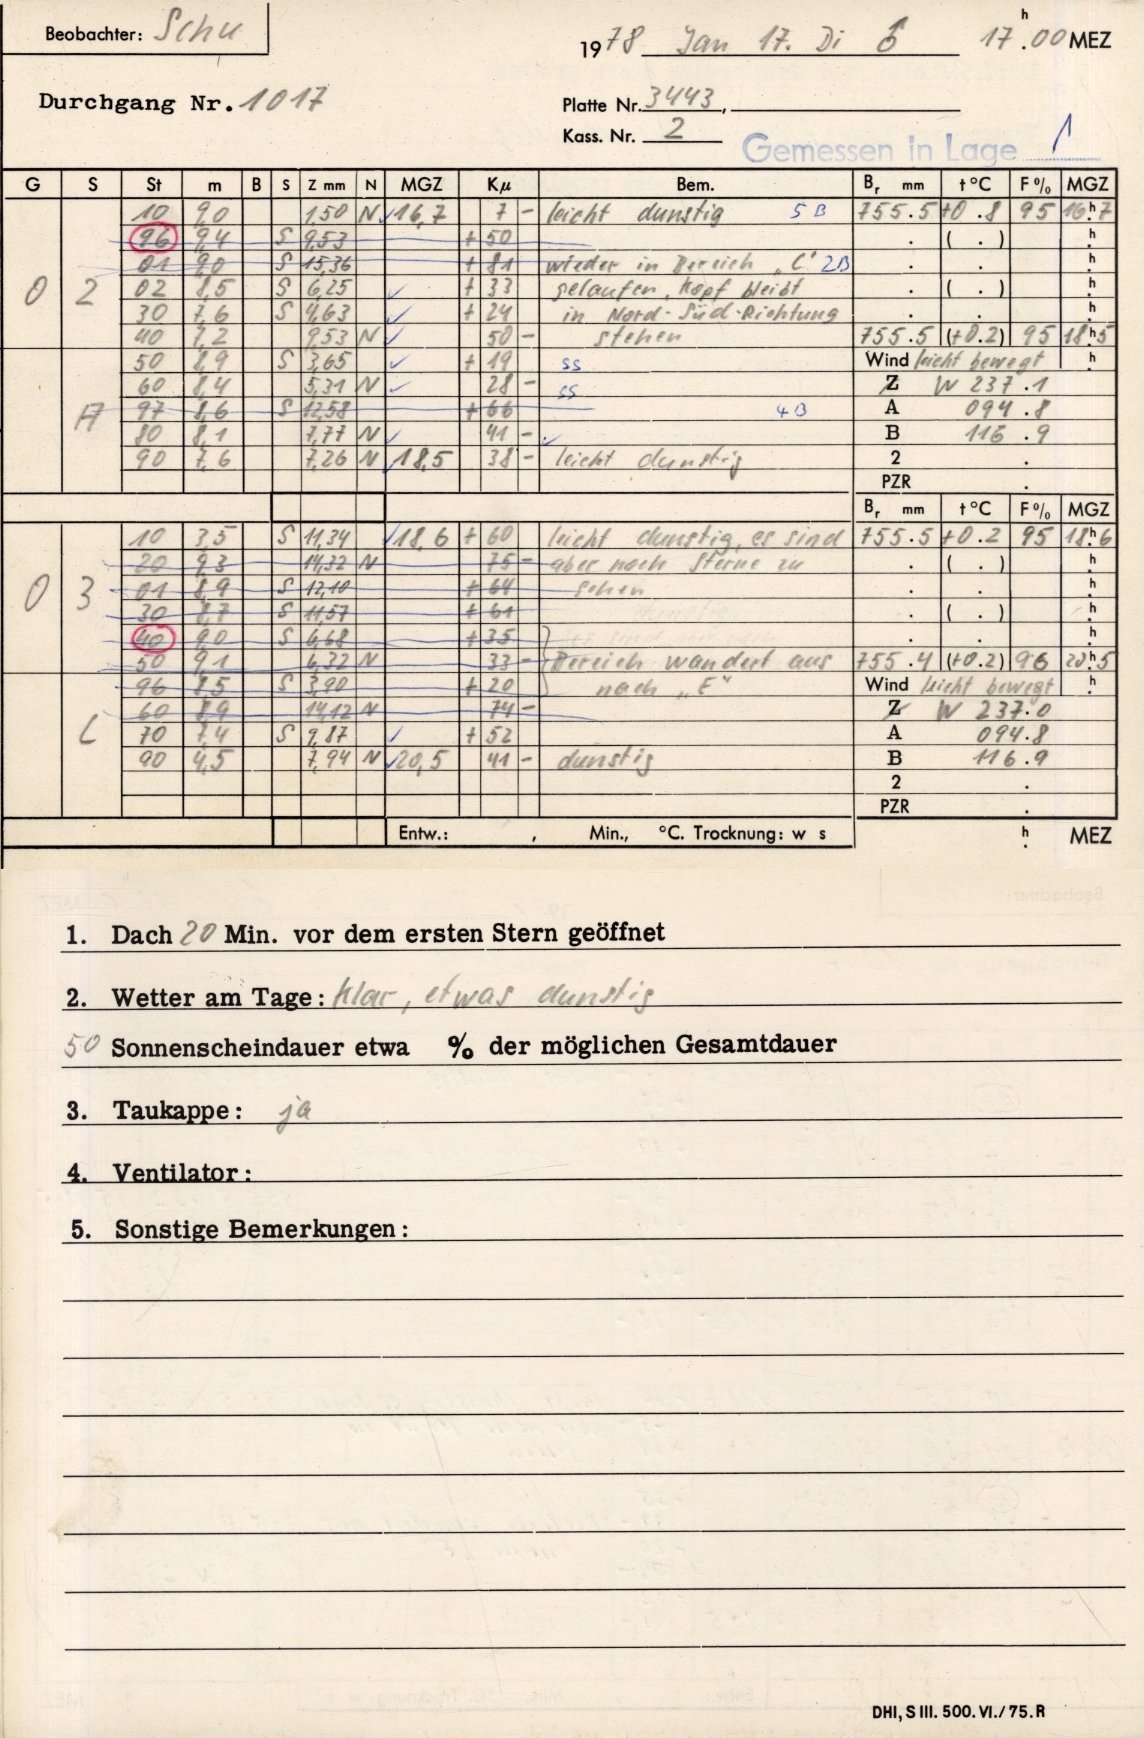 Beobachter: Schu
1978 Jan 17. Di 17h.00 MEZ
Durchgang Nr. 1017
Platte Nr. 3443,
Kass. Nr. 2
Gemessen in Lage 1
G S St m B S Z mm N MGZ Kμ Bem. Br mm t °C F % MGZ
10 9,0 1,50 N 16,7 7 - leicht dunstig 5B 755.5 +0.8 95 16h7
96 9,4 S 9,53 + 50 . ( . ) h
01 9,0 S 15,36 + 81 wieder in Bereich „C" 2B . . h
0 2 02 8,5 S 6,25 + 33 gelaufen, Kopf bleibt . ( . ) h
30 7,6 S 4,63 + 24 in Nord-Süd-Richtung . . h
40 7,2 9,53 N 50 - stehen 755.5 (+0.2) 95 18h5
50 8,9 S 3,65 + 19 ss Wind leicht bewegt h
60 8,4 5,31 N 28 - ss Z W 237.1
A 97 8,6 S 12,58 + 66 4B A 094.8
80 8,1 7,77 N 41 - B 116.9
90 7,6 7,26 N 18,5 38 - leicht dunstig 2 .
PZR .
Br mm t °C F % MGZ
10 3,5 S 11,34 18,6 + 60 leicht dunstig, es sind 755.5 +0.2 95 18h6
20 9,3 14,32 N 75 - aber noch Sterne zu . ( . ) h
0 3 01 8,9 S 12,10 + 64 sehen . . h
30 8,7 S 11,57 + 61 . ( . ) h
40 9,0 S 6,68 + 35 . . h
50 9,1 6,32 N 33 - Bereich wandert aus 755.4 (+0.2) 96 20h5
96 8,5 S 3,90 + 20 nach „E" Wind leicht bewegt h
60 8,9 14,12 N 74 - Z W 237.0
70 7,4 S 9,87 + 52 A 094.8
90 4,5 7,94 N 20,5 41 - dunstig B 116.9
2 .
PZR .
Entw.: , Min., °C. Trocknung: w s h. MEZ
1. Dach 20 Min. vor dem ersten Stern geöffnet
2. Wetter am Tage: klar, etwas dunstig
50 Sonnenscheindauer etwa % der möglichen Gesamtdauer
3. Taukappe: ja
4. Ventilator:
5. Sonstige Bemerkungen:
DHI, S III. 500. VI./75. R